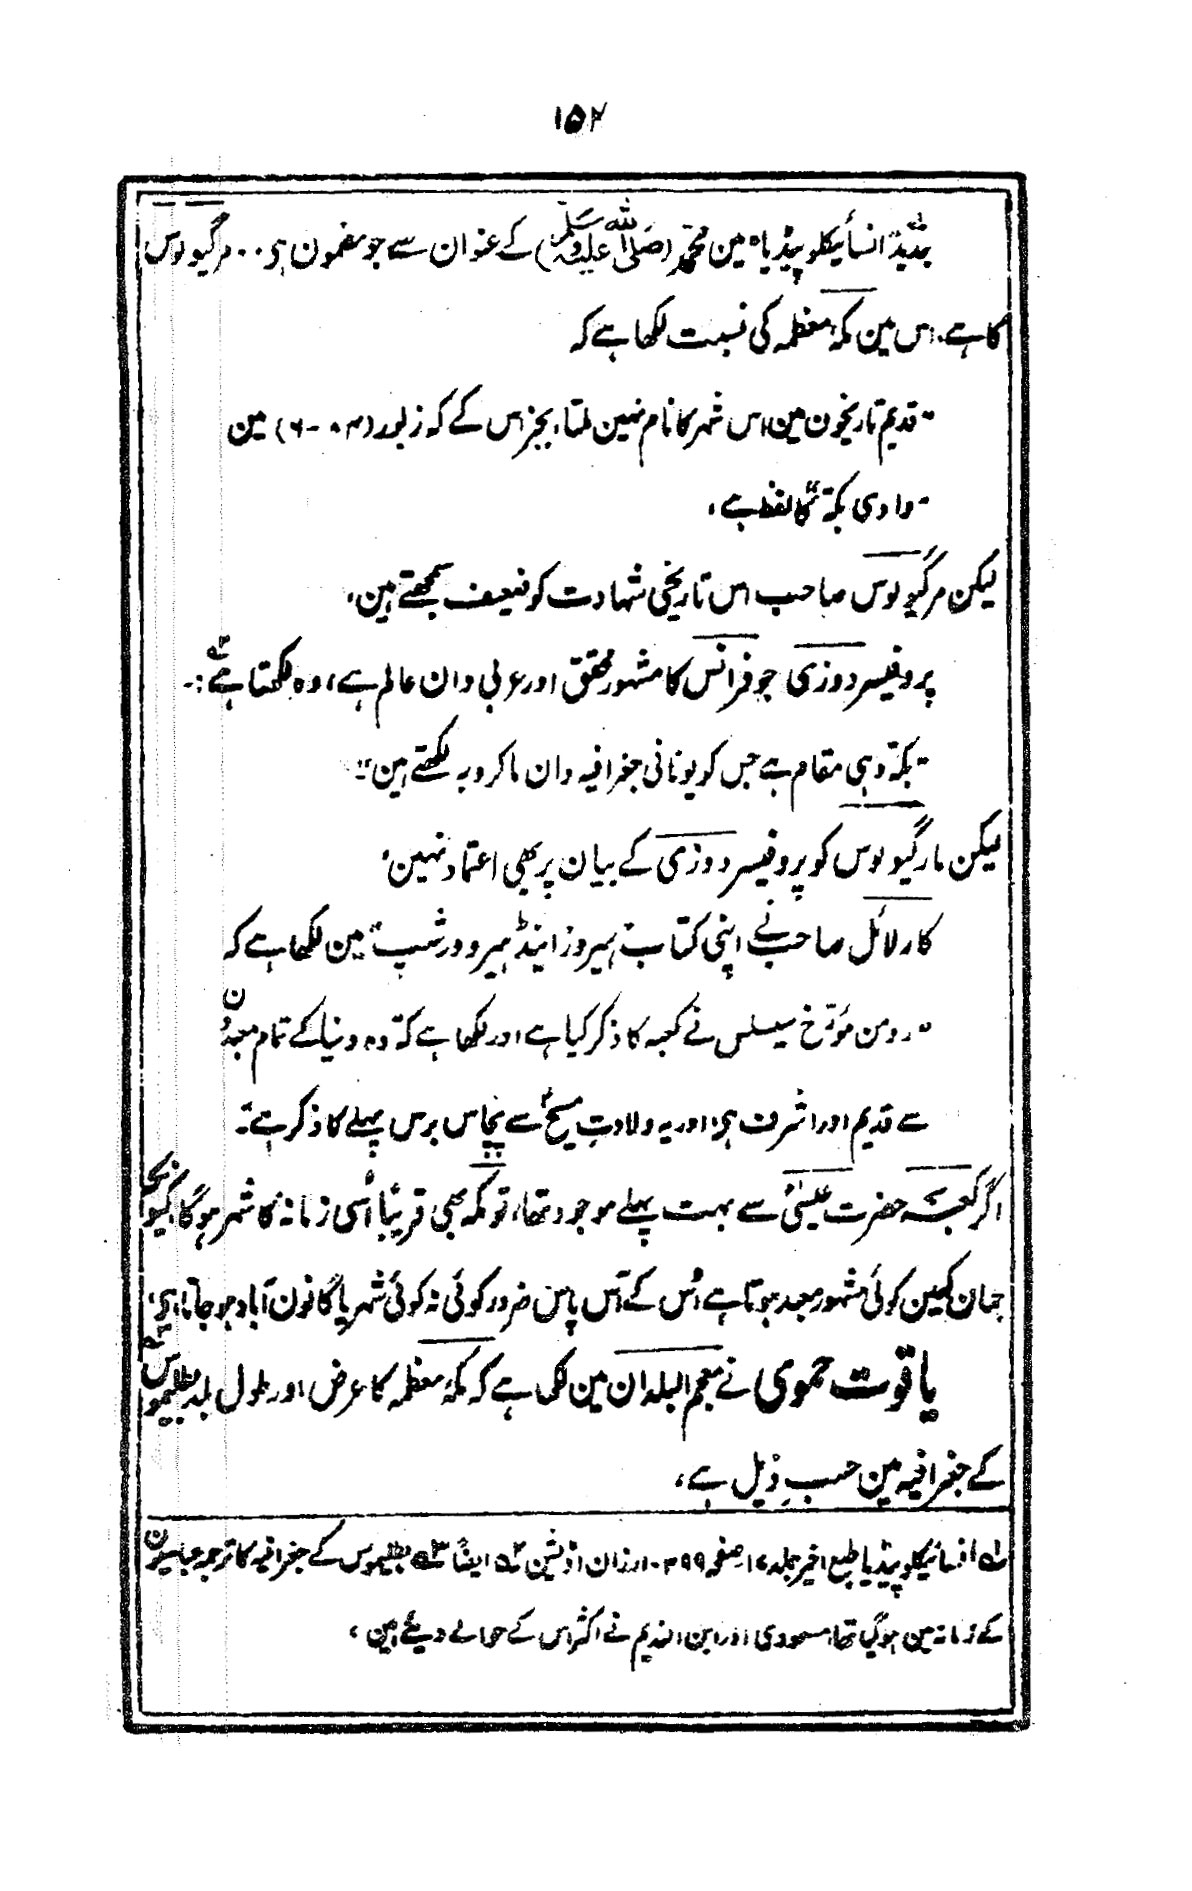 ۱۵۲
جدید انسائیکلوپیڈیا مین محمد (صلی اللہ علیہ وسلم) کے عنوان سے جو مضمون ہی.. مرگیولوس
کا ہے، اس مین مکہ معظمہ کی نسبت لکھا ہے کہ
"قدیم تاریخون مین اس شہر کا نام نہین ملتا، بجز اس کے کہ زبور (۸۴-۶) مین
"وادی بکۃ" کا لفظ ہے،
لیکن مرگیولوس صاحب اس تاریخی شہادت کو ضعیف سمجھتے ہین،
پروفیسر دوزی جو فرانس کا مشہور محقق اور عربی دان عالم ہے، وہ لکھتا ہے:-
"بکۃ وہی مقام ہے جس کو یونانی جغرافیہ دان ماکروبہ لکھتے ہین"
لیکن مارگیولوس کو پروفیسر دوزی کے بیان پر بھی اعتماد نہین،
کارلائل صاحب نے اپنی کتاب "ہیروز اینڈ ہیرو ورشپ" مین لکھا ہے کہ
"رومن مؤرخ سیسلس نے کعبہ کا ذکر کیا ہے اور لکھا ہے کہ وہ دنیا کے تمام معبدون
سے قدیم اور اشرف ہی، اور یہ ولادتِ مسیحؑ سے پچاس برس پہلے کا ذکر ہے"
اگر کعبہ حضرت عیسیٰؑ سے بہت پہلے موجود تھا، تو مکہ بھی قریبًا اُسی زمانہ کا شہر ہوگا، کیونکہ
جہان کہین کوئی مشہور معبد ہوتا ہے، اُس کے آس پاس ضرور کوئی نہ کوئی شہر یا گانون آباد ہوجاتا ہی،
یاقوت حموی نے معجم البلدان مین لکھا ہے کہ مکہ معظمہ کا عرض اور طول بلد بطلیموس
کے جغرافیہ مین حسبِ ذیل ہے،
لہ انسائیکلوپیڈیا طبع اخیر جلد ۱۷ صفحہ ۳۹۹. ارزان اڈیشن ۲ہ ایضًا ۳ہ بطلیموس کے جغرافیہ کا ترجمہ عباسیون
کے زمانہ مین ہوگیا تھا، مسعودی اور ابن الندیم نے اکثر اس کے حوالے دیئے ہین،